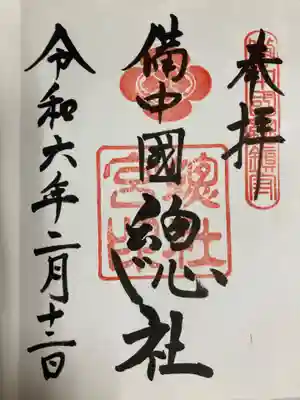 奉拝
備中國總社
總社宮印
令和六年二月十二日